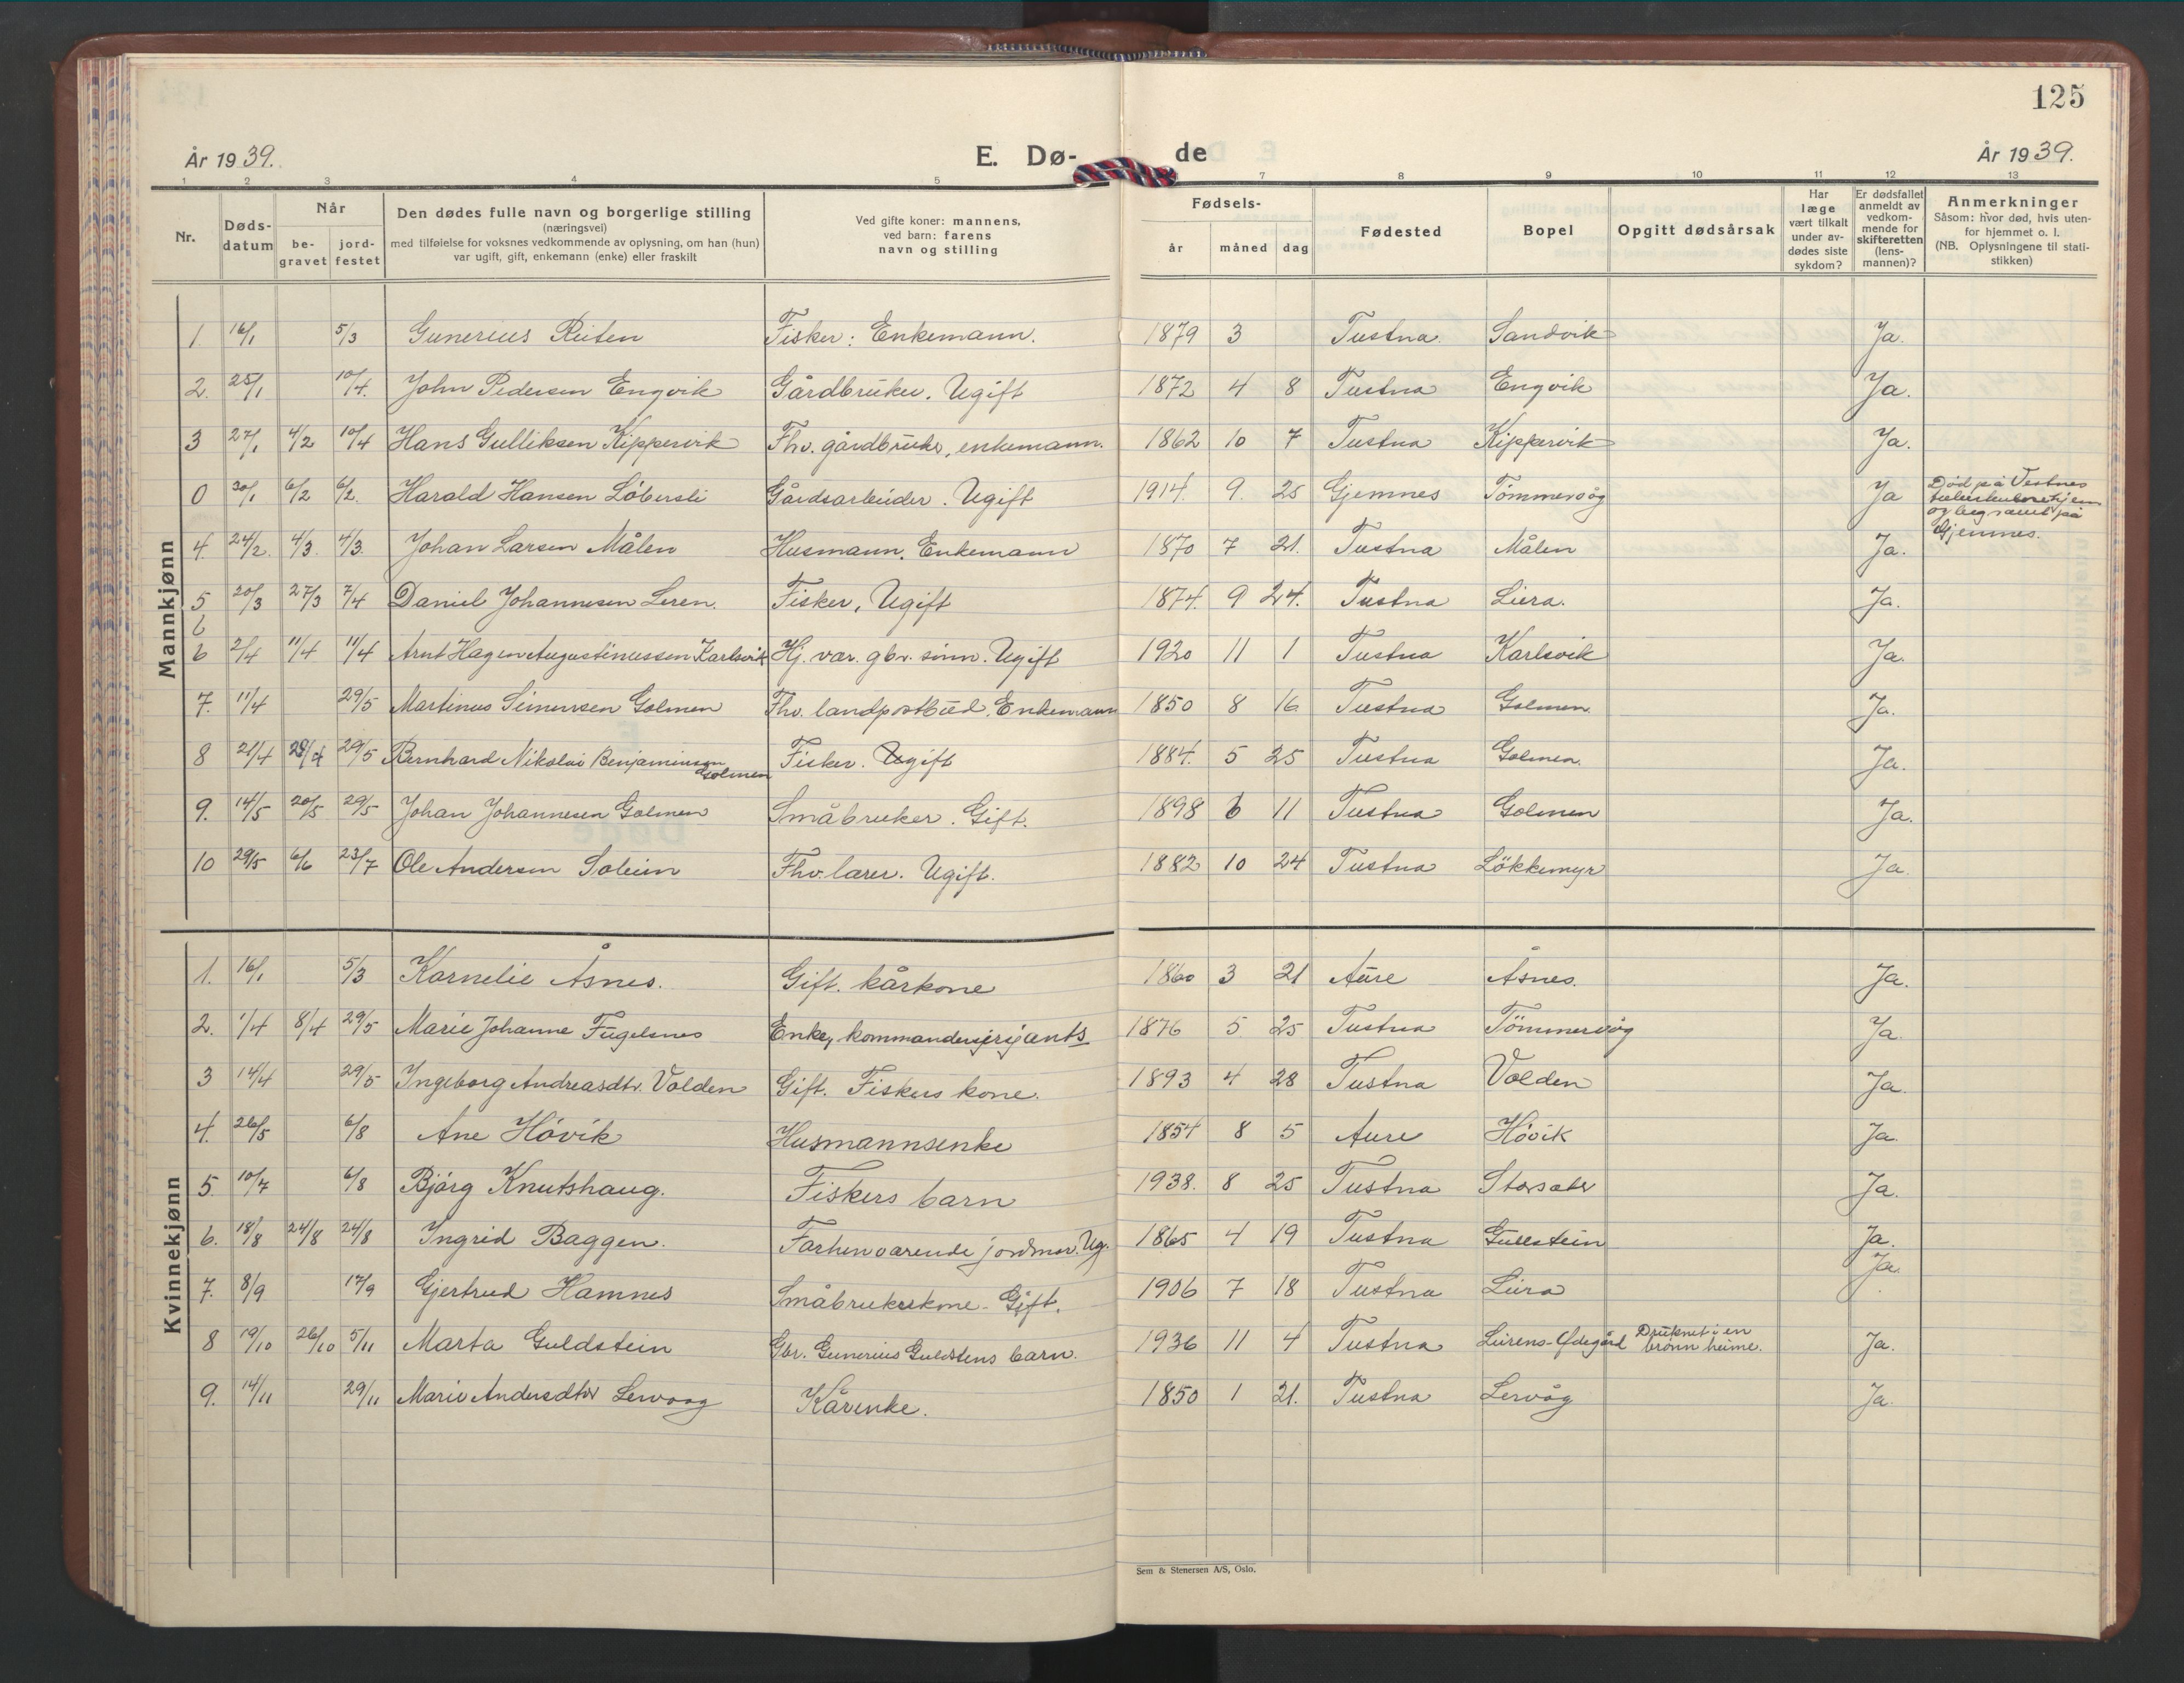 125
År 1939. E. Dø- de År 1939.
1 2 3 4 5 7 8 9 10 11 12 13
Nr. Døds-datum Når be-gravet jord-festet Den dødes fulle navn og borgerlige stilling (næringsvei) med tilføielse for voksnes vedkommende av oplysning, om han (hun) var ugift, gift, enkemann (enke) eller fraskilt Ved gifte koner: mannens, ved barn: farens navn og stilling Fødsels- år måned dag Fødested Bopel Opgitt dødsårsak Har læge vært tilkalt under av-dødes siste sykdom? Er dødsfallet anmeldt av vedkom-mende for skifteretten (lens-mannen)? Anmerkninger Såsom: hvor død, hvis uten-for hjemmet o. l. (NB. Oplysningene til stati-stikken)
Mannkjønn
1. 16/1 5/3 Gunerius Reiten Fisker: Enkemann. 1879 3 Tustna. Sandvik Ja.
2. 25/1 10/4. John Pedersen Engvik Gårdbruker. Ugift 1872 4 8 Tustna Engvik Ja.
3 27/1 4/2 10/4 Hans Gulliksen Kippervik Fhv. gårdbruker, enkemann. 1862 10 7 Tustna Kippervik Ja.
0 30/1 6/2 6/2. Harald Hansen Löbersli Gårdsarbeider. Ugift 1914. 9. 25 Gjemnes Tömmervåg Ja Död på Vestnes tuberkulosehjem og begravet på Gjemnes.
4. 24/2. 4/3. 4/3. Johan Larsen Målen Husmann. Enkemann 1870 7 21. Tustna Målen Ja.
5 20/3 27/3 7/4 Daniel Johannesen Leren. Fisker, Ugift 1874. 9 24. Tustna Leira. Ja.
6
6 2/4 11/4 11/4 Arnt Hagen Augustinussen Karlsvik Hj. var. gbr. sönn. Ugift 1920 11 1 Tustna Karlsvik Ja.
7. 11/4 29/5 Martinus Simensen Golmen Fhv. landpostbud. Enkemann 1850 8 16 Tustna Golmen. Ja.
8 21/4 28/4 29/5 Bernhard Nikolai Benjaminsen Golmen Fisker. Ugift 1884. 5 25 Tustna Golmen. Ja.
9. 14/5 20/5 29/5 Johan Johannesen Golmen Småbruker. Gift. 1898 6 11 Tustna Golmen Ja.
10 29/5 6/6 23/7 Ole Andersen Soleim Fhv. lærer. Ugift. 1882 10 24 Tustna Lökkemyr Ja.
Kvinnekjønn
1. 16/1 5/3 Kornelie Åsnes. Gift. kårkone 1860 3 21 Aure Åsnes. Ja.
2. 1/4 8/4 29/5 Marie Johanne Fugelsnes Enke, kommandersersjants 1876 5 25 Tustna Tömmervåg Ja.
3 14/4 29/5 Ingeborg Andreasdtr. Volden Gift. Fiskers kone. 1893 4 28 Tustna Volden Ja.
4. 26/5 6/8 Ane Hövik Husmannsenke 1854 8 5 Aure Hövik Ja.
5. 10/7 6/8 Bjørg Knutshaug. Fiskers barn 1938. 8 25 Tustna Storsæter Ja.
6. 18/8 24/8 24/8 Ingrid Baggen. Forhenværende jordmor. Ug. 1865 4 19 Tustna Gullstein Ja.
7. 8/9 17/9 Gjertrud Hamnes Småbrukerkone - Gift. 1906 7 18 Tustna Leira Ja.
8 19/10 26/10 5/11 Marta Guldstein Gbr. Gunerius Guldsteins barn. 1936 11 4 Tustna Leirens-Ödegård Druknet i en brönn heime. Ja.
9. 14/11 29/11 Marie Andersdtr Lervaag Kårenke. 1850 1 21. Tustna Lervåg Ja.
Sem & Stenersen A/S, Oslo.